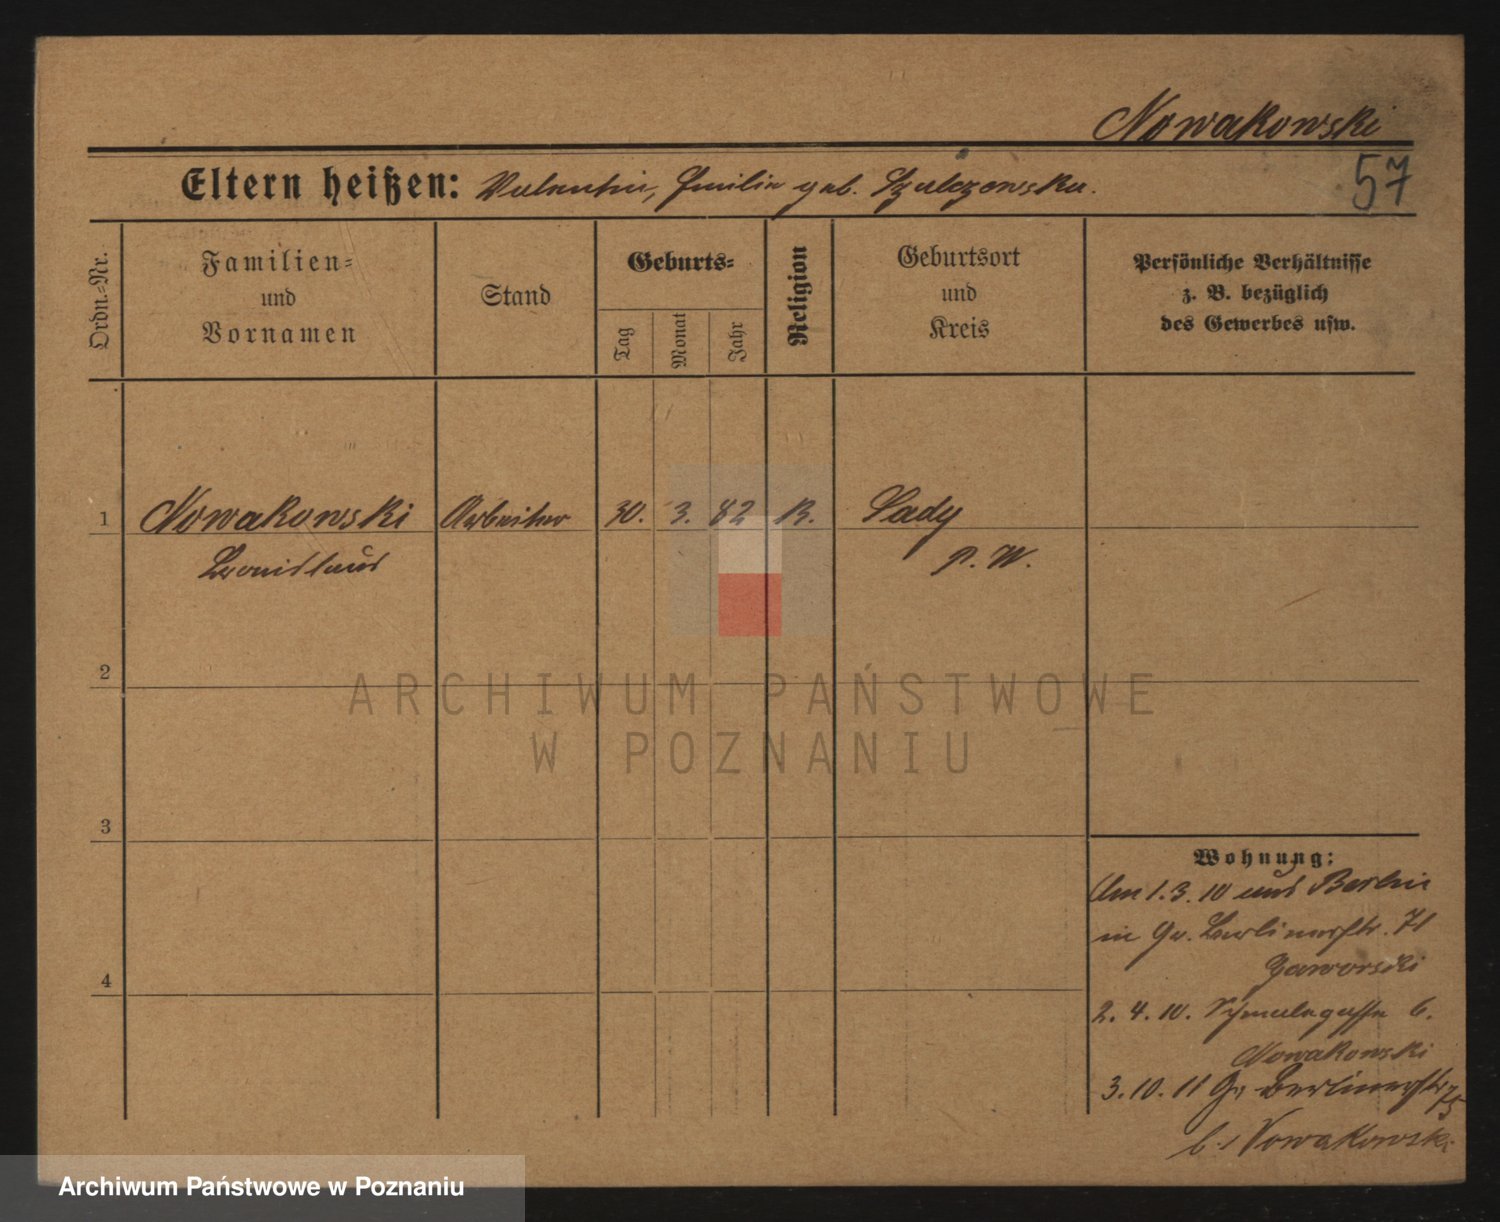 Nowakowski
Eltern heißen: Valentin, Emilie geb. Szulczewska.
57
Ordn.-Nr.
Familien-
und
Vornamen
Stand
Geburts-
Tag
Monat
Jahr
Religion
Geburtsort
und
Kreis
Persönliche Verhältnisse
z. B. bezüglich
des Gewerbes usw.
1
Nowakowski Arbeiter 30. 3. 82 K. Sady
Bronislaus P. W.
2
ARCHIWUM PAŃSTWOWE
W POZNANIU
3
Wohnung:
Am 1. 3. 10 aus Berlin
in Gr. Berlinerstr. 71
Jaworski
4
2. 4. 10. Schmalegasse 6.
Nowakowski
3. 10. 11 Gr. Berlinerstr 75
b. Nowakowski
Archiwum Państwowe w Poznaniu